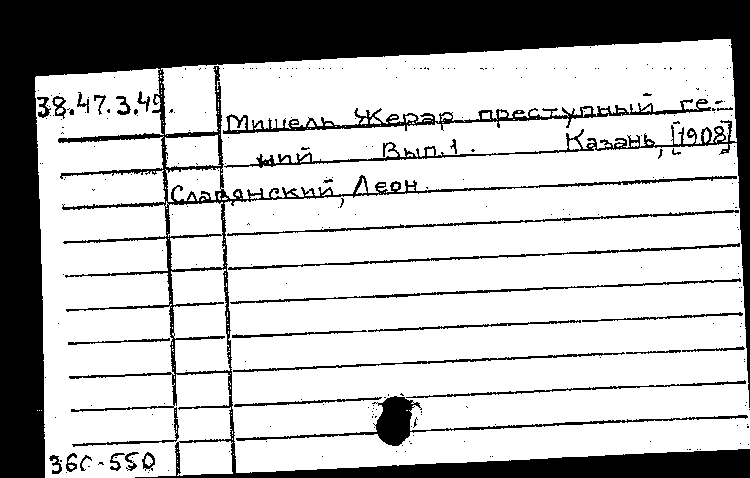 38.47.3.49.
Мишель Жерар преступный ге-
ний Вып.1. Казань, [1908]
Славянский, Леон.
360-550